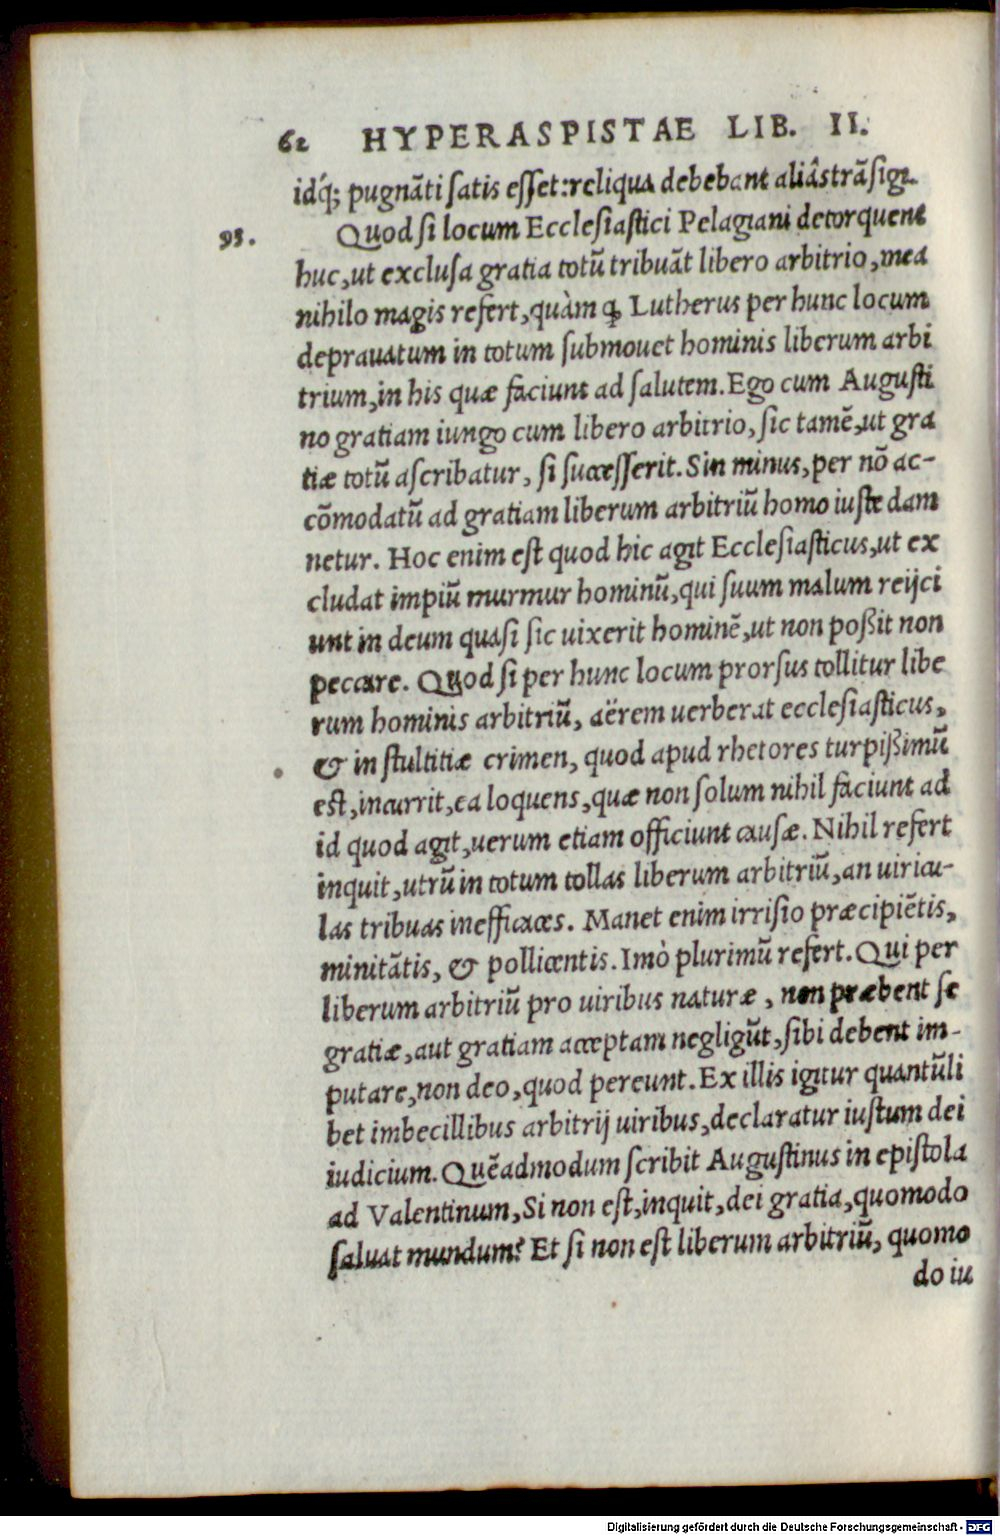 62 HYPERASPISTAE LIB. II.
idq́; pugnãti ſatis eſſet:reliqua debebant aliâstrãſigi.
93. Quod ſi locum Eccleſiaſtici Pelagiani detorquent
huc,ut excluſa gratia totũ tribuãt libero arbitrio,mea
nihilo magis refert,quàm ꝙ Lutherus per hunc locum
deprauatum in totum ſubmouet hominis liberum arbi
trium,in his quæ faciunt ad ſalutem.Ego cum Auguſti
no gratiam iungo cum libero arbitrio,ſic tamẽ,ut gra
tiæ totũ aſcribatur, ſi ſucceſſerit.Sin minus,per nõ ac-
cõmodatũ ad gratiam liberum arbitriũ homo iuſte dam
netur. Hoc enim eſt quod hic agit Eccleſiaſticus,ut ex
cludat impiũ murmur hominũ,qui ſuum malum reijci
unt in deum quaſi ſic uixerit hominẽ,ut non poßit non
peccare. Quod ſi per hunc locum prorſus tollitur libe
rum hominis arbitriũ, aërem uerberat eccleſiaſticus,
& in ſtultitiæ crimen, quod apud rhetores turpißimũ
eſt,incurrit,ea loquens,quæ non ſolum nihil faciunt ad
id quod agit,uerum etiam officiunt cauſæ. Nihil refert
inquit,utrũ in totum tollas liberum arbitriũ,an uiricu-
las tribuas inefficaces. Manet enim irriſio præcipiẽtis,
minitãtis, & pollicentis.Imò plurimũ refert.Qui per
liberum arbitriũ pro uiribus naturæ, non præbent ſe
gratiæ,aut gratiam acceptam negligũt,ſibi debent im-
putare,non deo,quod pereunt.Ex illis igitur quantũli
bet imbecillibus arbitrij uiribus,declaratur iuſtum dei
iudicium.Quẽadmodum ſcribit Auguſtinus in epiſtola
ad Valentinum,Si non eſt,inquit,dei gratia,quomodo
ſaluat mundum? Et ſi non eſt liberum arbitriũ, quomo
do iu
Digitalisierung gefördert durch die Deutsche Forschungsgemeinschaft - DFG